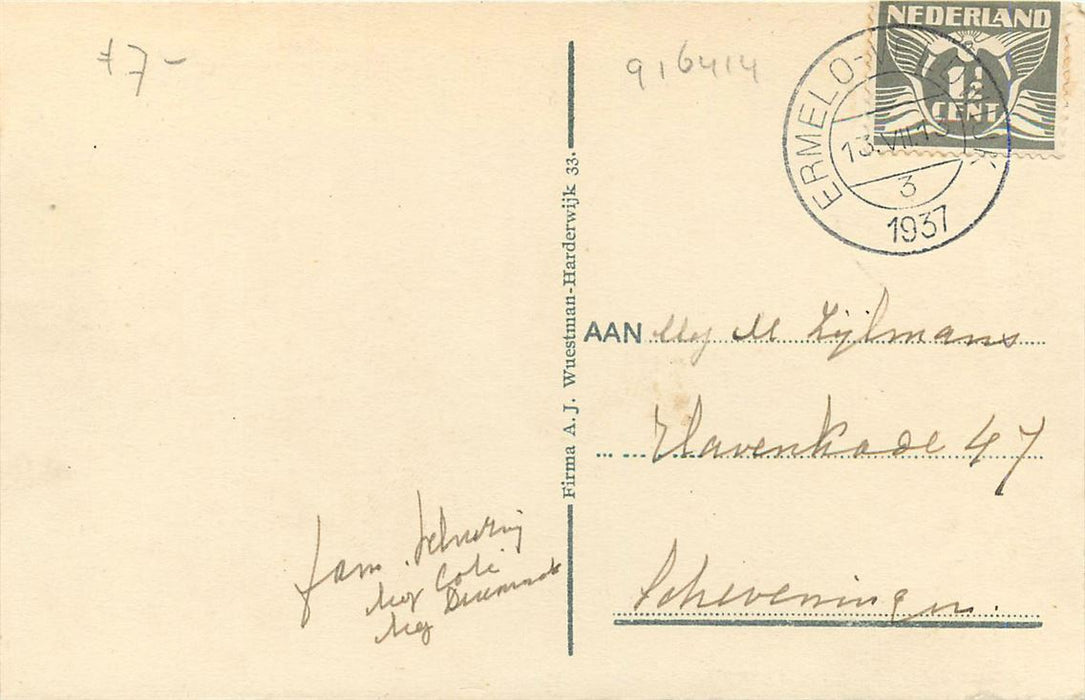 7-
916414
NEDERLAND
1½
CENT
ERMELO-
13.VII.13
3
1937
Firma A. J. Wuestman-Harderwijk 33.
AAN Mej M Zijlmans
Havenkade 47
Scheveningen.
fam.
Mej Coli
Mej